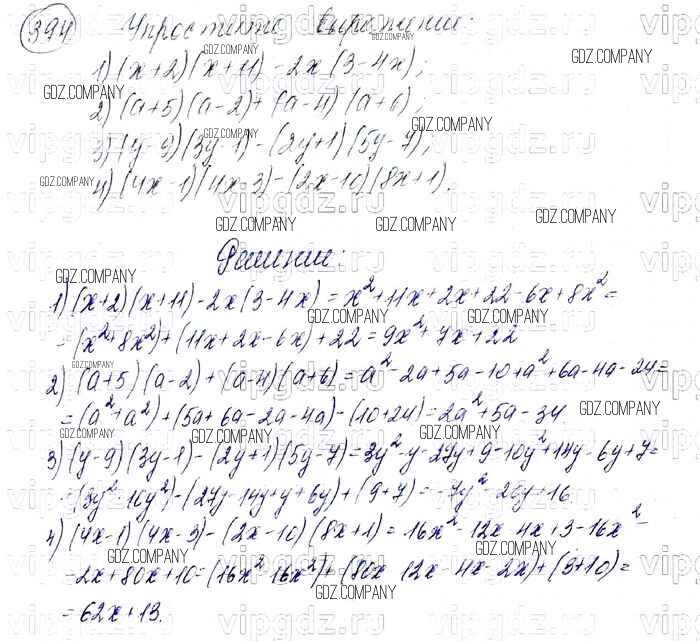 394 Упростите выражение:
1) (x+2)(x+11)-2x(3-4x);
2) (a+5)(a-2)+(a-4)(a+6);
3) (y-9)(3y-1)-(2y+1)(5y-7);
4) (4x-1)(4x-3)-(2x-10)(8x+1).
Решение:
1) (x+2)(x+11)-2x(3-4x)=x²+11x+2x+22-6x+8x²=
=(x²+8x²)+(11x+2x-6x)+22=9x²+7x+22
2) (a+5)(a-2)+(a-4)(a+6)=a²-2a+5a-10+a²+6a-4a-24=
=(a²+a²)+(5a+6a-2a-4a)-(10+24)=2a²+5a-34.
3) (y-9)(3y-1)-(2y+1)(5y-7)=3y²-y-27y+9-10y²+14y-5y+7=
=(3y²-10y²)-(27y-14y+y+6y)+(9+7)=-7y²-20y+16.
4) (4x-1)(4x-3)-(2x-10)(8x+1)=16x²-12x-4x+3-16x²-
-2x+80x+10=(16x²-16x²)+(80x-12x-4x-2x)+(3+10)=
=62x+13.
GDZ.COMPANY
vipgdz.ru